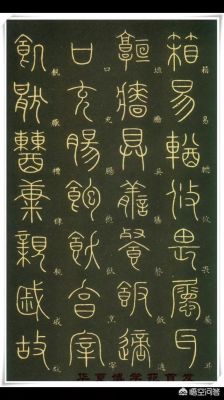 箱易輶攸畏屬耳
垣牆具膳餐飯適
口充腸飽飫烹宰
飢厭糟糠親戚故
悟空问答